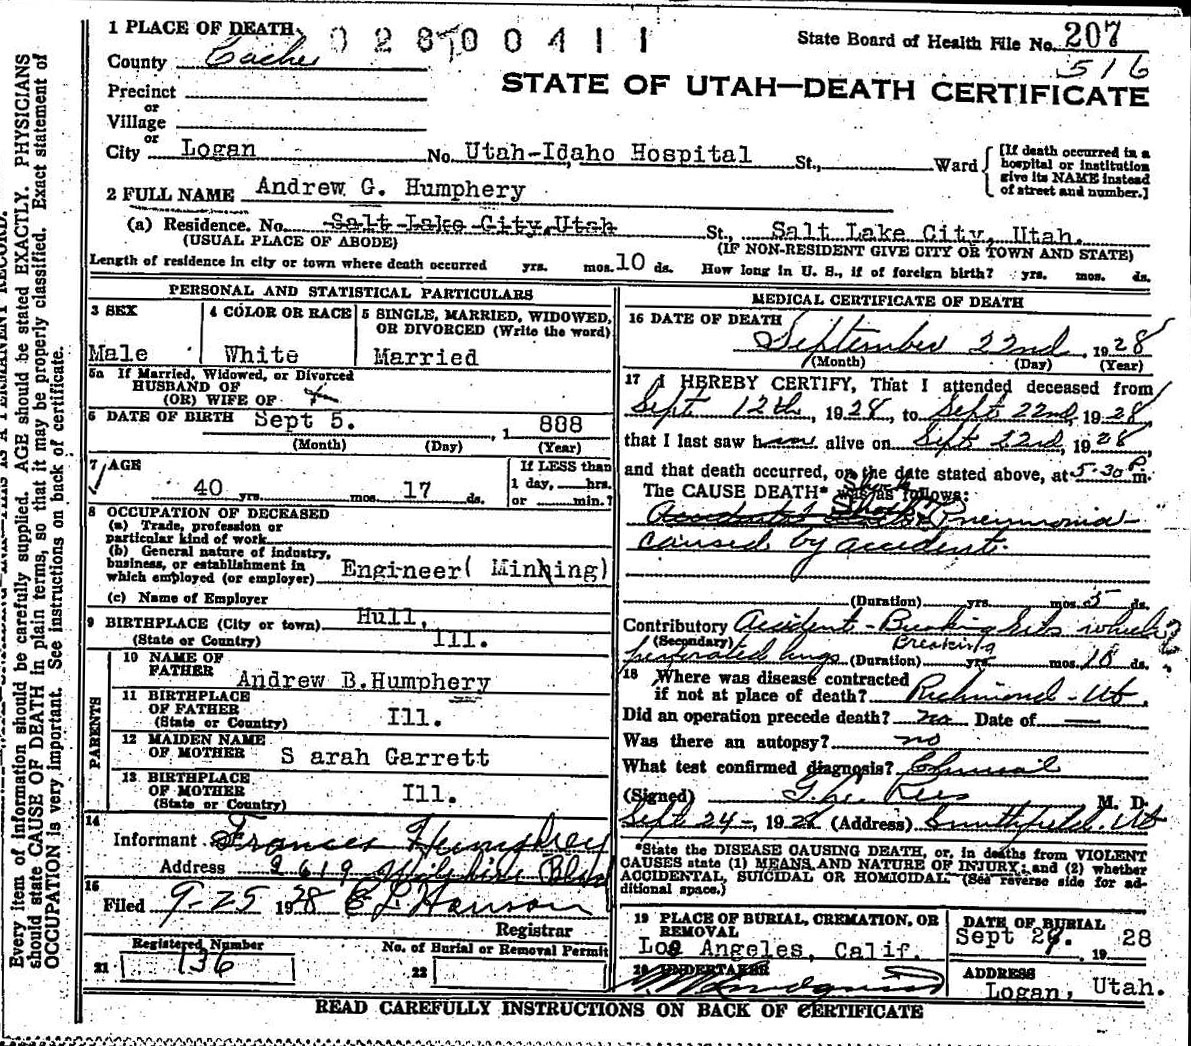 1 PLACE OF DEATH
02800411
State Board of Health File No. 207
County Cache
516
STATE OF UTAH—DEATH CERTIFICATE
Precinct
or
Village
or
City Logan No. Utah-Idaho Hospital St., Ward
[If death occurred in a hospital or institution give its NAME instead of street and number.]
2 FULL NAME Andrew G. Humphery
(a) Residence. No. Salt Lake City, Utah St., Salt Lake City, Utah.
(USUAL PLACE OF ABODE) (IF NON-RESIDENT GIVE CITY OR TOWN AND STATE)
Length of residence in city or town where death occurred yrs. mos. 10 ds. How long in U. S., if of foreign birth? yrs. mos. ds.
PERSONAL AND STATISTICAL PARTICULARS
3 SEX
Male
4 COLOR OR RACE
White
5 SINGLE, MARRIED, WIDOWED,
OR DIVORCED (Write the word)
Married
5a If Married, Widowed, or Divorced
HUSBAND OF
(OR) WIFE OF
6 DATE OF BIRTH Sept 5. , 1 888
(Month) (Day) (Year)
7 AGE
40 yrs. mos. 17 ds.
If LESS than
1 day, hrs.
or min.?
8 OCCUPATION OF DECEASED
(a) Trade, profession or
particular kind of work
(b) General nature of industry,
business, or establishment in
which employed (or employer) Engineer( Minning)
(c) Name of Employer
9 BIRTHPLACE (City or town) Hull,
(State or Country) Ill.
PARENTS
10 NAME OF
FATHER Andrew B.Humphery
11 BIRTHPLACE
OF FATHER
(State or Country) Ill.
12 MAIDEN NAME
OF MOTHER S arah Garrett
13 BIRTHPLACE
OF MOTHER
(State or Country) Ill.
14
Informant Frances Humphrey
Address 2619 Wilshire Blvd
15
Filed 9-25 1928 E L Hanson
Registrar
Registered Number
21 136
No. of Burial or Removal Permit
22
MEDICAL CERTIFICATE OF DEATH
16 DATE OF DEATH
September 22nd, 1928
(Month) (Day) (Year)
17 I HEREBY CERTIFY, That I attended deceased from
Sept 12th, 1928, to Sept 22nd, 1928
that I last saw him alive on Sept 22nd, 1928
and that death occurred, on the date stated above, at 5-30 P m.
The CAUSE DEATH* was as follows:
Shock
Pneumonia
caused by accident.
(Duration) yrs. mos. 5 ds.
Contributory Accident - Breaking ribs which
(Secondary) Breaking
perforated lungs (Duration) yrs. mos. 10 ds.
18 Where was disease contracted
if not at place of death? Richmond - Ut.
Did an operation precede death? no Date of
Was there an autopsy? no
What test confirmed diagnosis? Clinical
(Signed) Rees M. D.
Sept 24-, 1928 (Address) Smithfield. Ut
*State the DISEASE CAUSING DEATH, or, in deaths from VIOLENT
CAUSES state (1) MEANS AND NATURE OF INJURY; and (2) whether
ACCIDENTAL, SUICIDAL OR HOMICIDAL. (See reverse side for ad-
ditional space.)
19 PLACE OF BURIAL, CREMATION, OR
REMOVAL
Los Angeles, Calif.
DATE OF BURIAL
Sept 24. 19 28
20 UNDERTAKER
ADDRESS
Logan, Utah.
READ CAREFULLY INSTRUCTIONS ON BACK OF CERTIFICATE
Every item of information should be carefully supplied. AGE should be stated EXACTLY. PHYSICIANS
should state CAUSE OF DEATH in plain terms, so that it may be properly classified. Exact statement of
OCCUPATION is very important. See instructions on back of certificate.